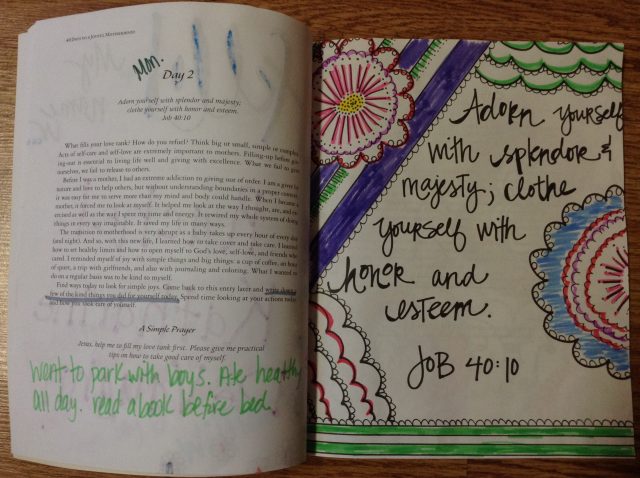 40 Days to a Joyful Motherhood
Mon.
Day 2
Adorn yourself with splendor and majesty;
clothe yourself with honor and esteem.
Job 40:10
What fills your love tank? How do you refuel? Think big or small, simple or complex.
Acts of self-care and self-love are extremely important to mothers. Filling-up before giv-
ing-out is essential to living life well and giving with excellence. What we fail to give
ourselves, we fail to release to others.
Before I was a mother, I had an extreme addiction to giving out of order. I am a giver by
nature and love to help others, but without understanding boundaries in a proper context,
it was easy for me to serve more than my mind and body could handle. When I became a
mother, it forced me to look at myself. It helped me look at the way I thought, ate, and ex-
ercised as well as the way I spent my time and energy. It rewired my whole system of doing
things in every way imaginable. It saved my life in many ways.
The transition to motherhood is very abrupt as a baby takes up every hour of every day
(and night). And so, with this new life, I learned how to take cover and take care. I learned
how to set healthy limits and how to open myself up to God's love, self-love, and friends who
cared. I reminded myself of joy with simple things and big things: a cup of coffee, an hour
of quiet, a trip with girlfriends, and also with journaling and coloring. What I wanted to
do on a regular basis was to be kind to myself.
Find ways today to look for simple joys. Come back to this entry later and write down a
few of the kind things you did for yourself today. Spend time looking at your actions today
and how you took care of yourself.
A Simple Prayer
Jesus, help me to fill my love tank first. Please give me practical
tips on how to take good care of myself.
Went to park with boys. Ate healthy
all day. read a book before bed.
Adorn yourself
with splendor &
majesty; clothe
yourself with
honor and
esteem.
JOB 40:10